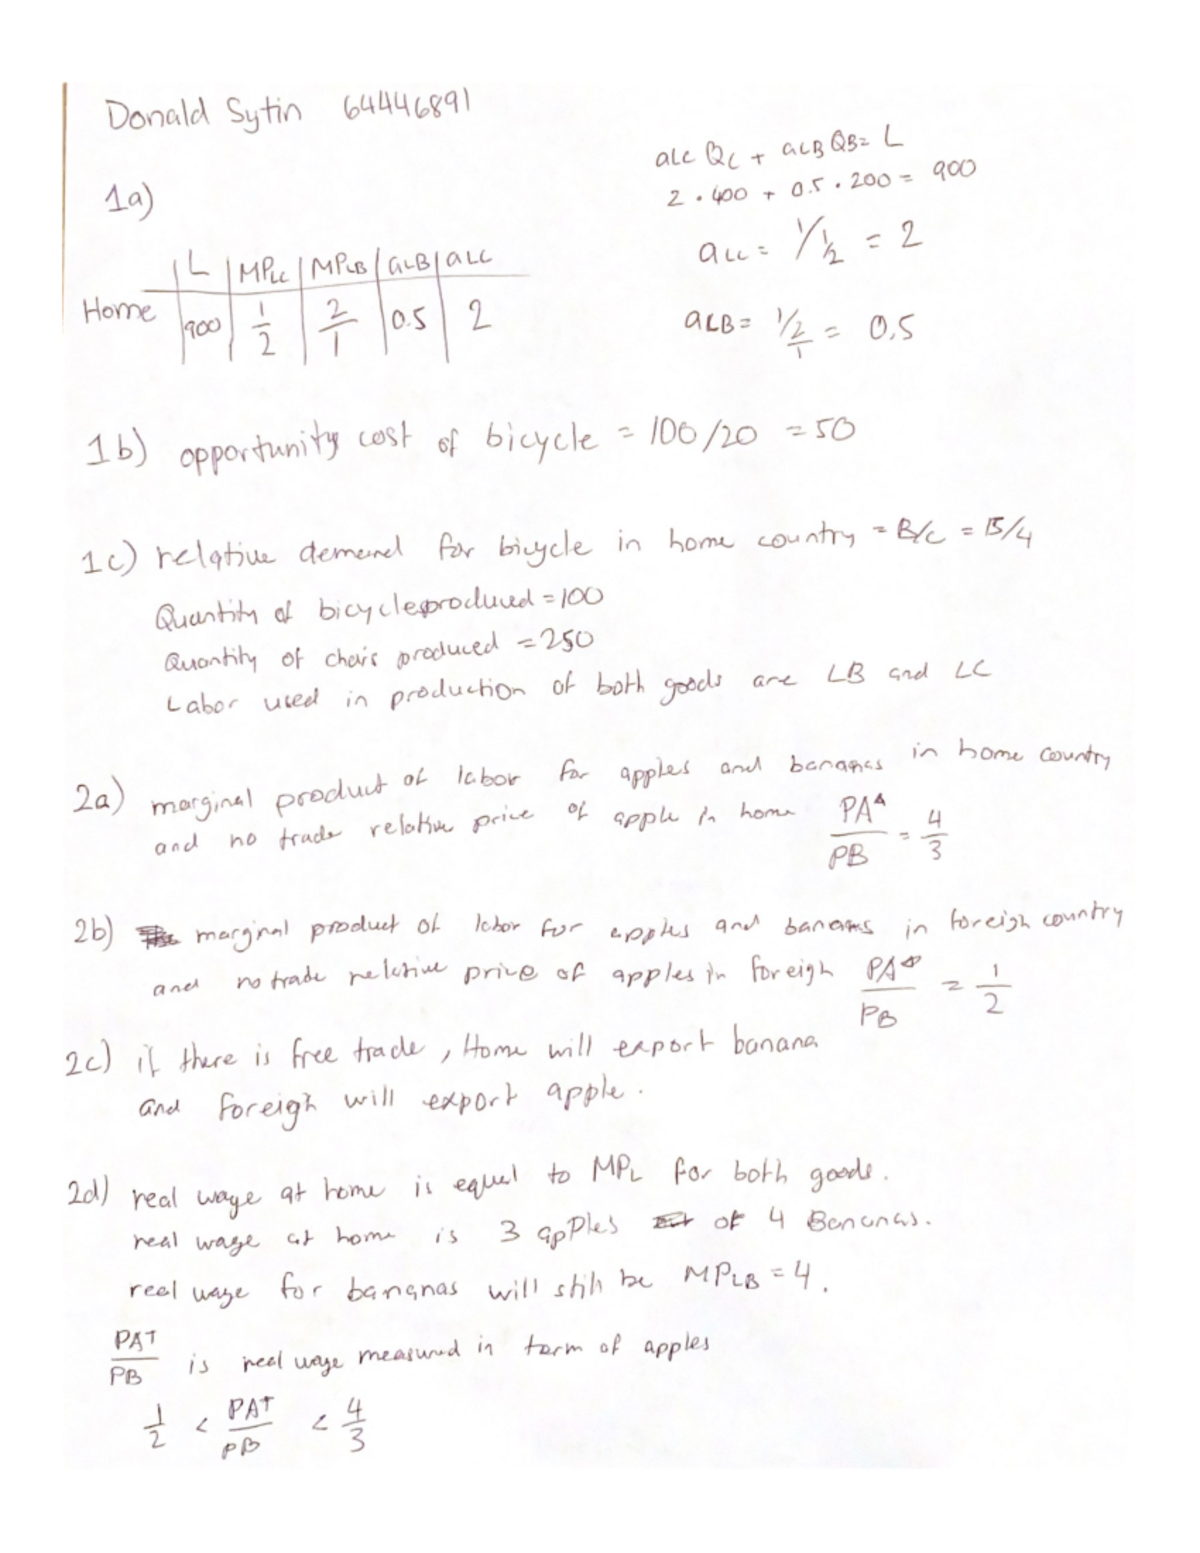 Donald Sytin 64446891
aLC QC + aLB QB = L
2 · 400 + 0.5 · 200 = 900
1a)
aLC = 1/½ = 2
L | MPLC | MPLB | aLB | aLC
Home 900 | 1/2 | 2/1 | 0.5 | 2
aLB = 1/2/1 = 0.5
1b) opportunity cost of bicycle = 100/20 = 50
1c) relative demend for bicycle in home country = B/C = B/4
Quantity of bicycles produced = 100
Quantity of chairs produced = 250
Labor used in production of both goods are LB and LC
2a) marginal product of labor for apples and bananas in home country
and no trade relative price of apple in home PA^A/PB = 4/3
2b) marginal product of labor for apples and bananas in foreigh country
and no trade relative price of apples in foreigh PA/PB = 1/2
2c) if there is free trade, Home will export banana
and foreigh will export apple.
2d) real wage at home is equal to MPL for both goods.
real wage at home is 3 apples of 4 Bananas.
real wage for bananas will still be MPLB = 4.
PAT/PB is real wage measured in term of apples
1/2 < PAT/PB < 4/3